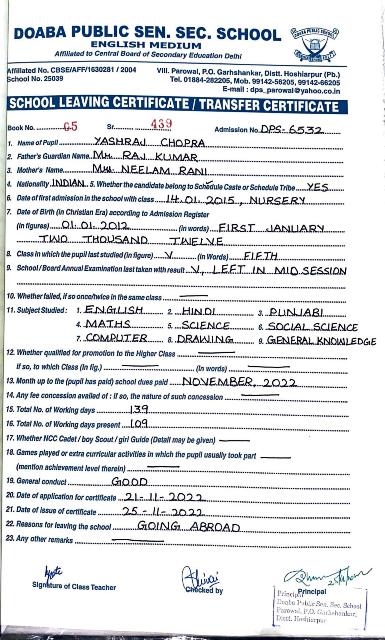 DOABA PUBLIC SEN. SEC. SCHOOL
ENGLISH MEDIUM
Affiliated to Central Board of Secondary Education Delhi
Affiliated No. CBSE/AFF/1630281 / 2004
School No. 25039
Vill. Parowal, P.O. Garhshankar, Distt. Hoshiarpur (Pb.)
Tel. 01884-282205, Mob. 99142-56205, 99142-66205
E-mail : dps_parowal@yahoo.co.in
SCHOOL LEAVING CERTIFICATE / TRANSFER CERTIFICATE
Book No. 05 Sr. 439 Admission No. DPS-6532
1. Name of Pupil YASHRAJ CHOPRA
2. Father's Guardian Name Mr. RAJ KUMAR
3. Mother's Name Mrs. NEELAM RANI
4. Nationality INDIAN 5. Whether the candidate belong to Schedule Caste or Schedule Tribe YES
6. Date of first admission in the school with class 14.01.2015, NURSERY
7. Date of Birth (in Christian Era) according to Admission Register
(in figures) 01.01.2012 (in words) FIRST JANUARY
TWO THOUSAND TWELVE
8. Class in which the pupil last studied (in figure) V (in Words) FIFTH
9. School / Board Annual Examination last taken with result V, LEFT IN MID SESSION
10. Whether failed, if so once/twice in the same class
11. Subject Studied : 1. ENGLISH 2. HINDI 3. PUNJABI
4. MATHS 5. SCIENCE 6. SOCIAL SCIENCE
7. COMPUTER 8. DRAWING 9. GENERAL KNOWLEDGE
12. Whether qualified for promotion to the Higher Class
If so, to which Class (in fig.) (in words)
13. Month up to the (pupil has paid) school dues paid NOVEMBER, 2022
14. Any fee concession availed of : if so, the nature of such concession
15. Total No. of Working days 139
16. Total No. of Working days present 109
17. Whether NCC Cadet / boy Scout / girl Guide (Detail may be given)
18. Games played or extra curricular activities in which the pupil usually took part
(mention achievement level therein)
19. General conduct GOOD
20. Date of application for certificate 21-11-2022
21. Date of issue of certificate 25-11-2022
22. Reasons for leaving the school GOING ABROAD
23. Any other remarks
Signature of Class Teacher
Checked by
Principal
Doaba Public Sen. Sec. School
Parowal, P.O. Garhshankar,
Distt. Hoshiarpur